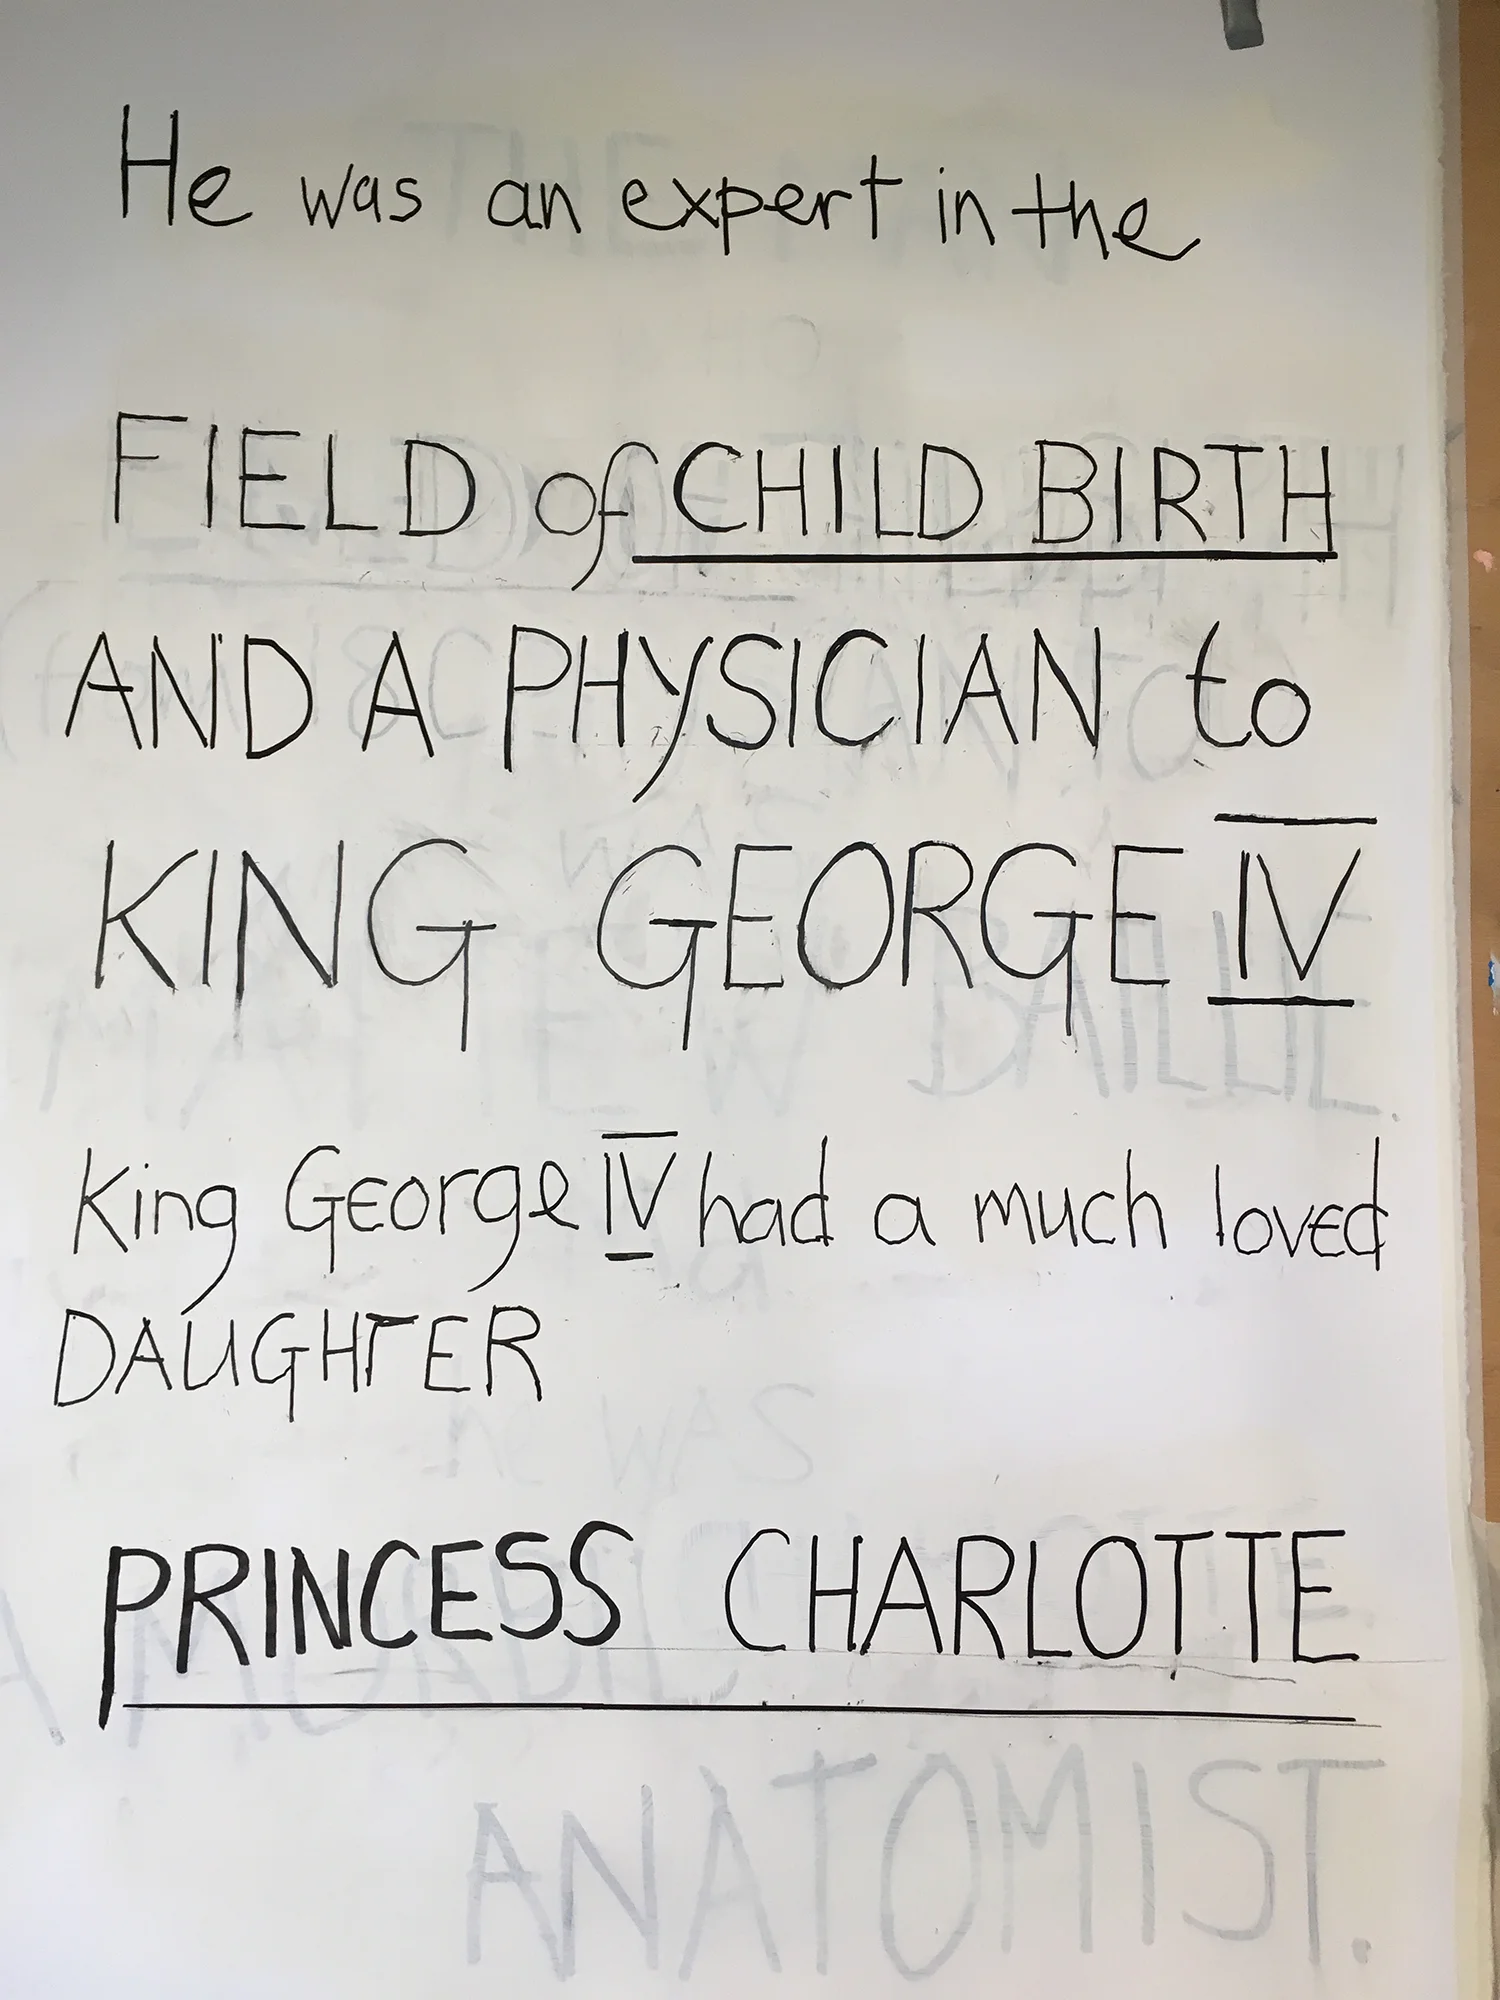 He was an expert in the
FIELD of CHILD BIRTH
AND A PHYSICIAN to
KING GEORGE IV
King George IV had a much loved
DAUGHTER
PRINCESS CHARLOTTE
ANATOMIST.